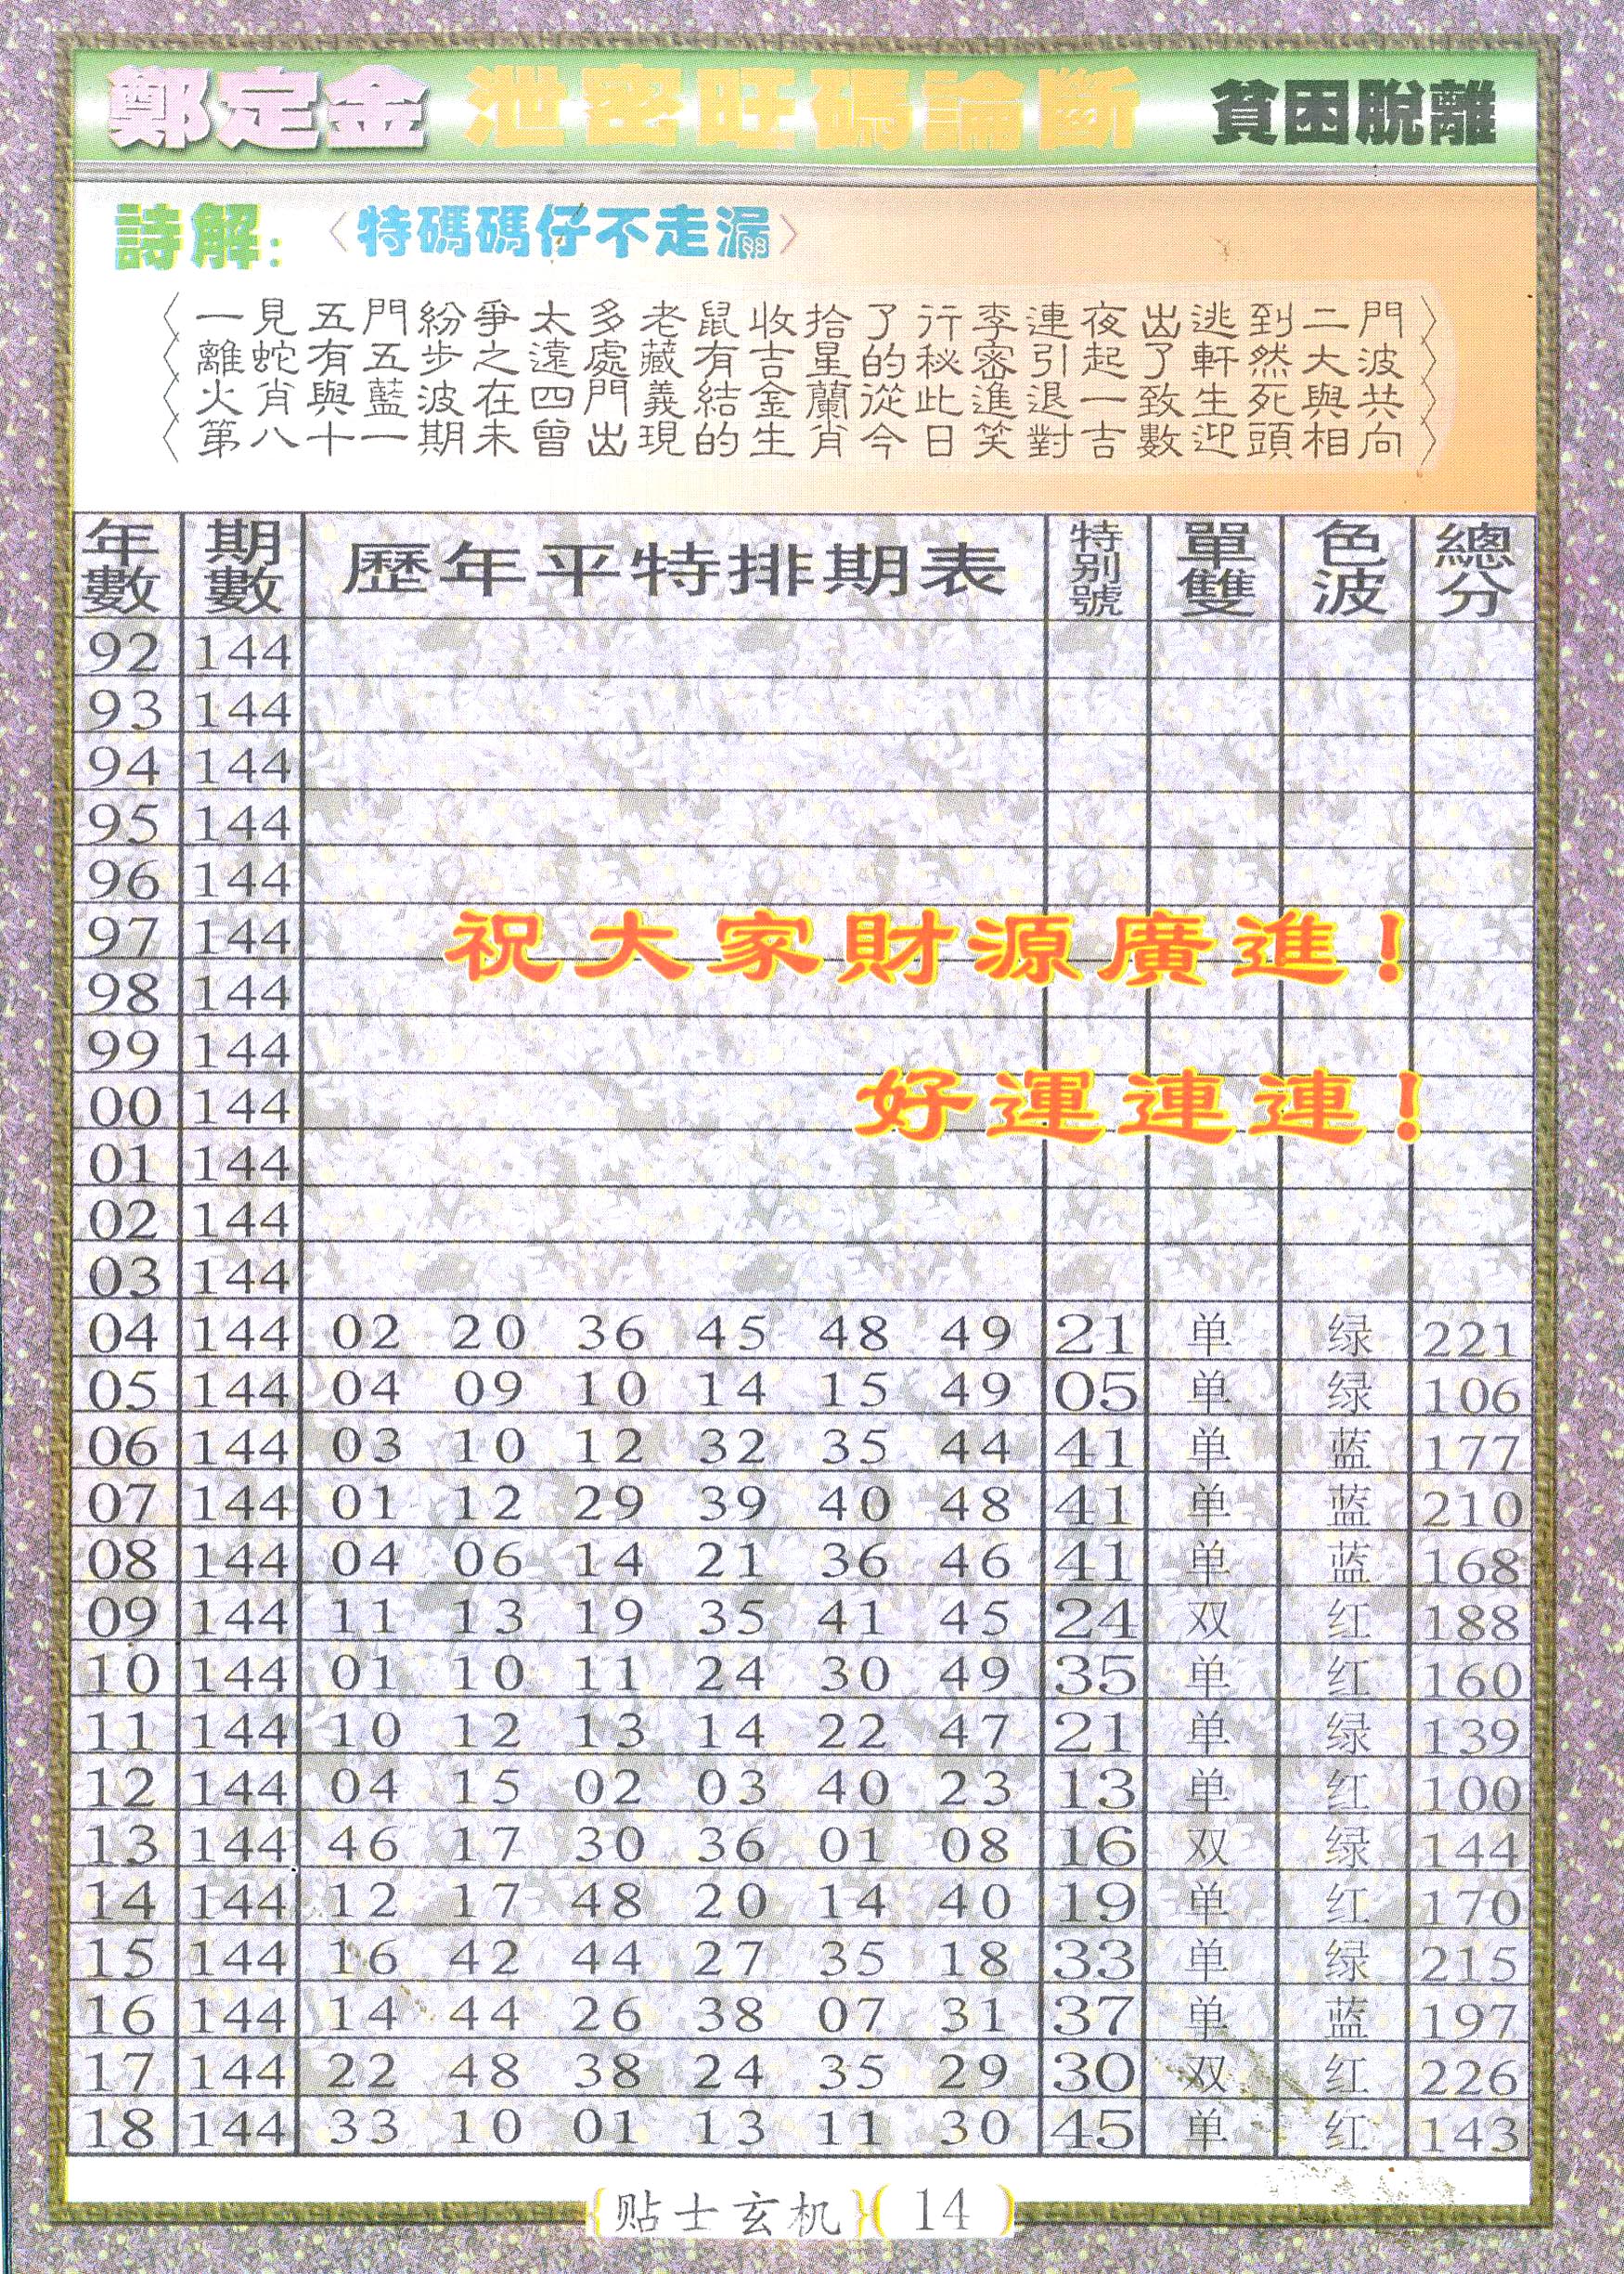 鄭定金 泄密旺碼論斷 貧困脫離
詩解：〈特碼碼仔不走漏〉
〈一見五門紛爭太多老鼠收拾了行李連夜出逃到二門〉
〈離蛇有五步之遠處藏有吉星的秘密引起了軒然大波〉
〈火肖與藍波在四門義結金蘭從此進退一致生死與共〉
〈第八十一期未曾出現的生肖今日笑對吉數迎頭相向〉
年數 期數 歷年平特排期表 特別號 單雙 色波 總分
92 144
93 144
94 144
95 144
96 144
97 144
祝大家財源廣進！
98 144
99 144
00 144
好運連連！
01 144
02 144
03 144
04 144 02 20 36 45 48 49 21 单 绿 221
05 144 04 09 10 14 15 49 05 单 绿 106
06 144 03 10 12 32 35 44 41 单 蓝 177
07 144 01 12 29 39 40 48 41 单 蓝 210
08 144 04 06 14 21 36 46 41 单 蓝 168
09 144 11 13 19 35 41 45 24 双 红 188
10 144 01 10 11 24 30 49 35 单 红 160
11 144 10 12 13 14 22 47 21 单 绿 139
12 144 04 15 02 03 40 23 13 单 红 100
13 144 46 17 30 36 01 08 16 双 绿 144
14 144 12 17 48 20 14 40 19 单 红 170
15 144 16 42 44 27 35 18 33 单 绿 215
16 144 14 44 26 38 07 31 37 单 蓝 197
17 144 22 48 38 24 35 29 30 双 红 226
18 144 33 10 01 13 11 30 45 单 红 143
{贴士玄机}( 14 )